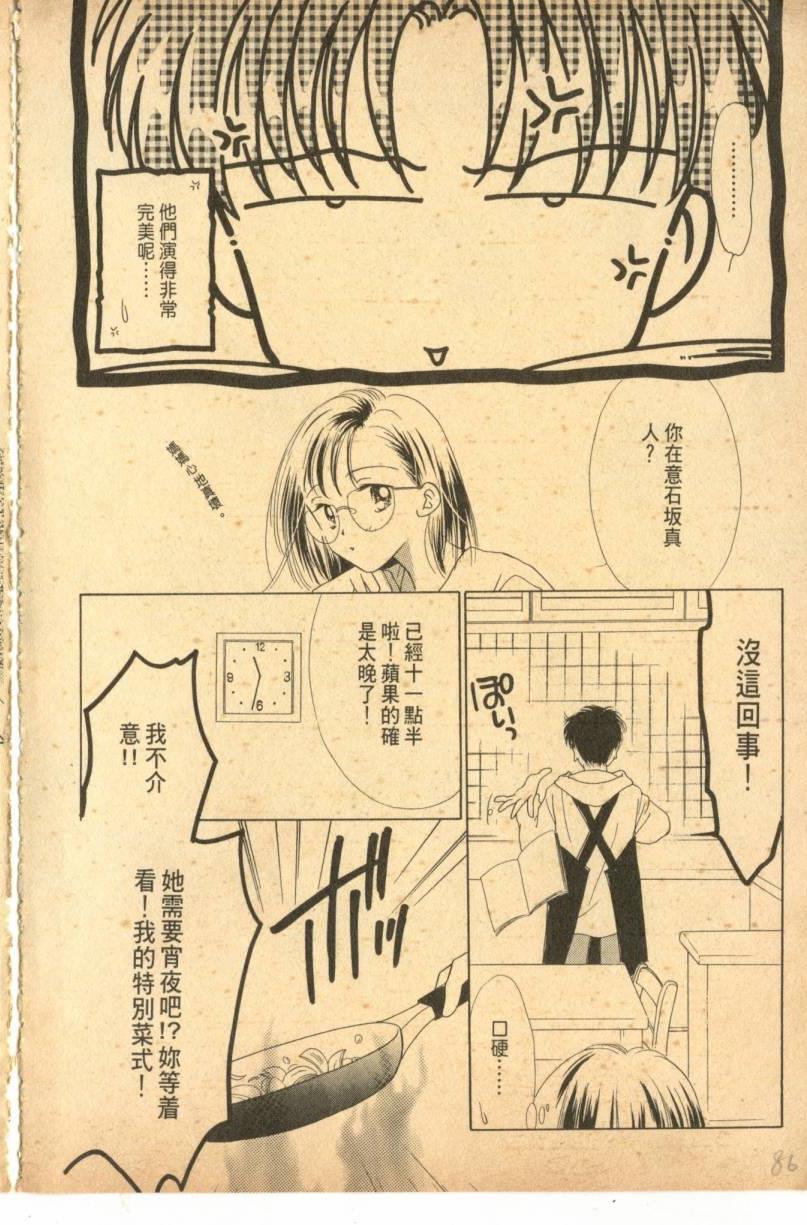 …………
他們演得非常
完美呢……
你在意石坂真
人？
媽媽心地真壞。
沒這回事！
ぽいっ
口硬……
已經十一點半
啦！蘋果的確
是太晚了！
12
3
6
9
我不介
意!!
她需要宵夜吧!?妳等着
看！我的特別菜式！
ボボ
86